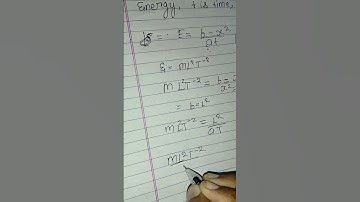 Energy, t is time,
E = b - x²
at
E = ML²T⁻²
ML²T⁻² = b =
x²
= b = L²
ML²T⁻² = L²
aT
ML²T⁻²